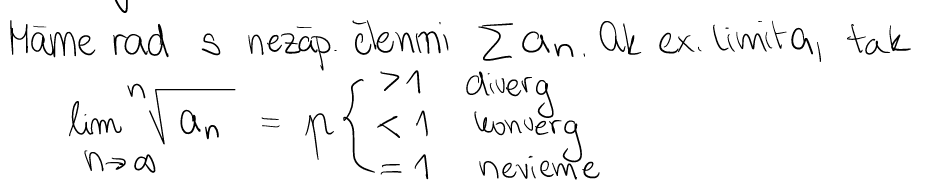 Máme rad s nezáp. členmi ∑ an. Ak ex. limita, tak
lim n→∞ ⁿ√an = p { >1 diverg
< 1 konverg
= 1 nevieme